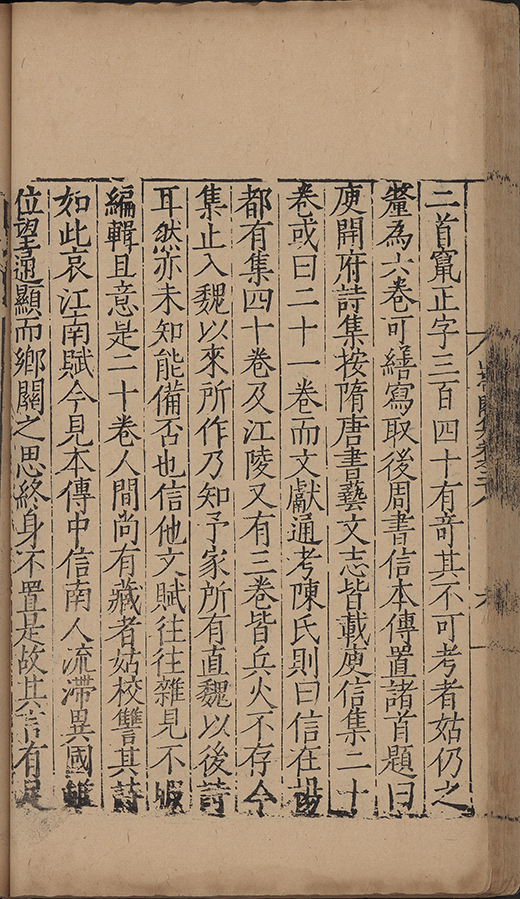 二首竄正字三百四十有竒其不可考者姑仍之
釐為六卷可繕寫取後周書信本傳置諸首題曰
庾開府詩集按隋唐書藝文志皆載庾信集二十
卷或曰二十一卷而文獻通考陳氏則曰信在揚
都有集四十卷及江陵又有三卷皆兵火不存今
集止入魏以來所作乃知予家所有直魏以後詩
耳然亦未知能備否也信他文賦往往雜見不暇
編輯且意是二十卷人間尚有藏者姑校讐其詩
如此哀江南賦今見本傳中信南人流滯異國雖
位望通顯而鄉關之思終身不置是故其言有足